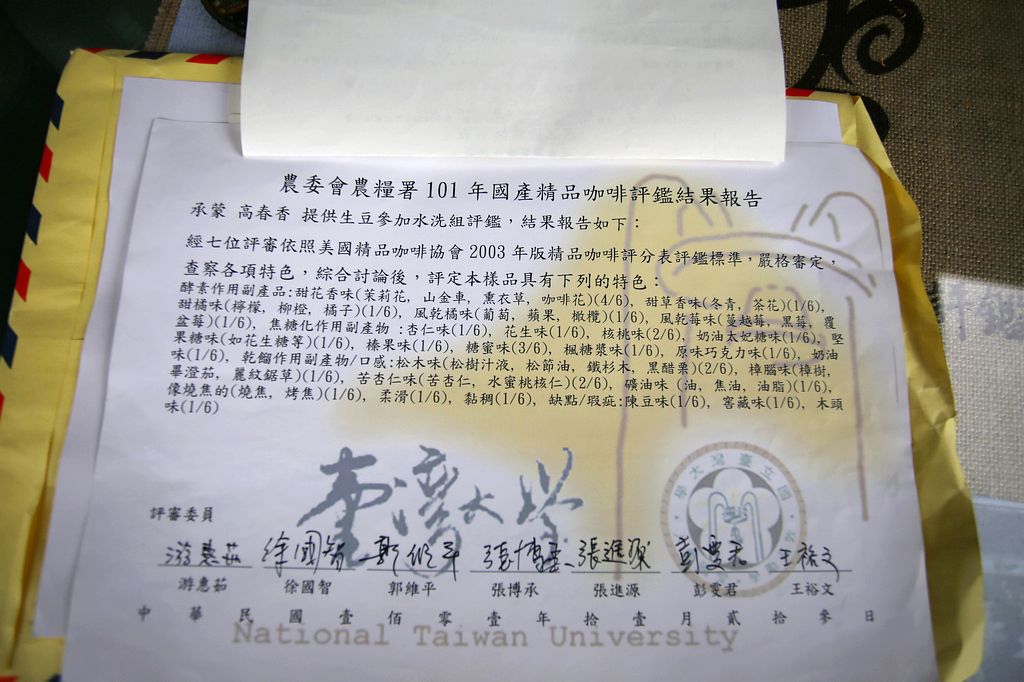 農委會農糧署101年國產精品咖啡評鑑結果報告
承蒙 高春香 提供生豆參加水洗組評鑑，結果報告如下：
經七位評審依照美國精品咖啡協會2003年版精品咖啡評分表評鑑標準，嚴格審定，
查察各項特色，綜合討論後，評定本樣品具有下列的特色：
酵素作用副產品:甜花香味(茉莉花, 山金車, 熏衣草, 咖啡花)(4/6), 甜草香味(冬青, 茶花)(1/6),
甜橘味(檸檬, 柳橙, 橘子)(1/6), 風乾橘味(葡萄, 蘋果, 橄欖)(1/6), 風乾莓味(蔓越莓, 黑莓, 覆
盆莓)(1/6), 焦糖化作用副產物 :杏仁味(1/6), 花生味(1/6), 核桃味(2/6), 奶油太妃糖味(1/6), 堅
果糖味(如花生糖等)(1/6), 榛果味(1/6), 糖蜜味(3/6), 楓糖漿味(1/6), 原味巧克力味(1/6), 奶油
味(1/6), 乾餾作用副產物/口感:松木味(松樹汁液, 松節油, 鐵杉木, 黑醋栗)(2/6), 樟腦味(樟樹,
畢澄茄, 麗紋鋸草)(1/6), 苦杏仁味(苦杏仁, 水蜜桃核仁)(2/6), 礦油味(油, 焦油, 油脂)(1/6),
像燒焦的(燒焦, 烤焦)(1/6), 柔滑(1/6), 黏稠(1/6), 缺點/瑕疵:陳豆味(1/6), 窖藏味(1/6), 木頭
味(1/6)
臺灣大學
國立臺灣大學
評審委員
游惠茹 徐國智 郭維平 張博承 張進源 彭雯君 王裕文
游惠茹 徐國智 郭維平 張博承 張進源 彭雯君 王裕文
中華民國壹佰零壹年拾壹月貳拾參日
National Taiwan University